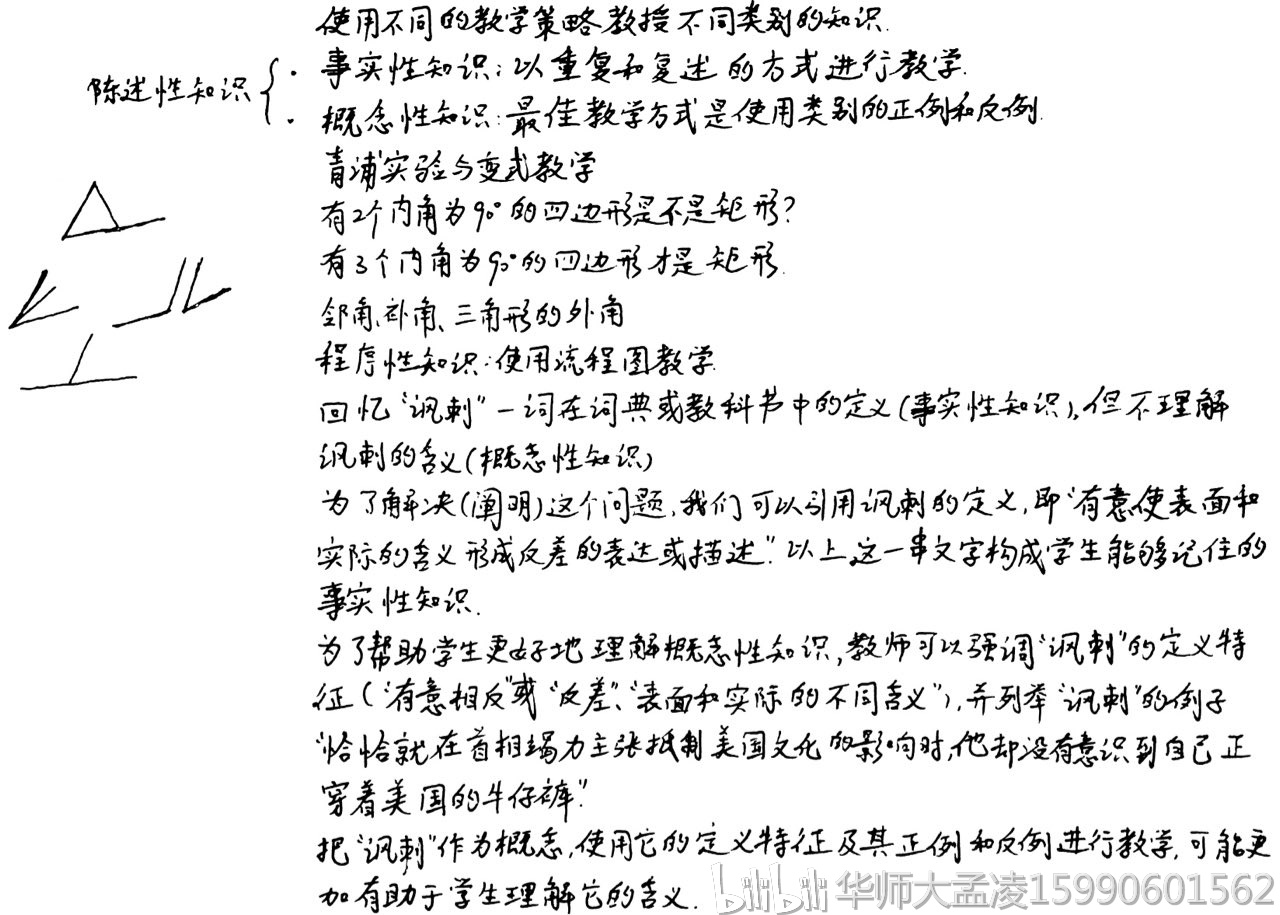 使用不同的教学策略教授不同类别的知识.
陈述性知识{· 事实性知识:以重复和复述的方式进行教学.
· 概念性知识:最佳教学方式是使用类别的正例和反例.
青浦实验与变式教学
有2个内角为90°的四边形是不是矩形?
有3个内角为90°的四边形才是矩形.
邻角、补角、三角形的外角
程序性知识:使用流程图教学.
回忆“讽刺”一词在词典或教科书中的定义(事实性知识),但不理解
讽刺的含义(概念性知识)
为了解决(阐明)这个问题,我们可以引用讽刺的定义,即“有意使表面和
实际的含义形成反差的表达或描述.”以上这一串文字构成学生能够记住的
事实性知识.
为了帮助学生更好地理解概念性知识,教师可以强调“讽刺”的定义特
征(“有意相反”或“反差”、“表面和实际的不同含义”),并列举“讽刺”的例子
“恰恰就在首相竭力主张抵制美国文化的影响时,他却没有意识到自己正
穿着美国的牛仔裤.”
把“讽刺”作为概念,使用它的定义特征及其正例和反例进行教学,可能更
加有助于学生理解它的含义.
bilibili 华师大孟凌15990601562